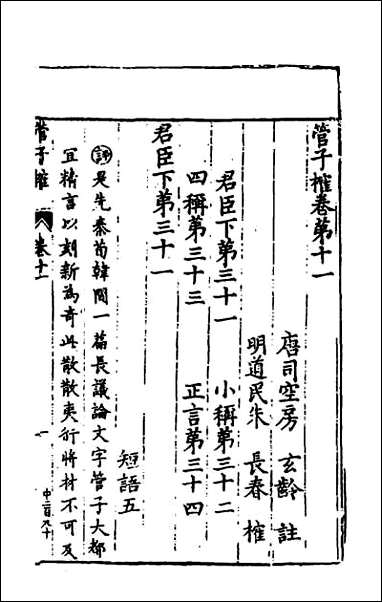 管子榷卷第十一
唐司空房 玄齡 註
明道民朱 長春 榷
君臣下第三十一 小稱第三十二
四稱第三十三 正言第三十四
君臣下第三十一
短語五
評是先秦荀韓間一篇長議論文字管子大都
宜精言以刻新為奇此散散夷行將材不可及
管子榷 卷十一 一